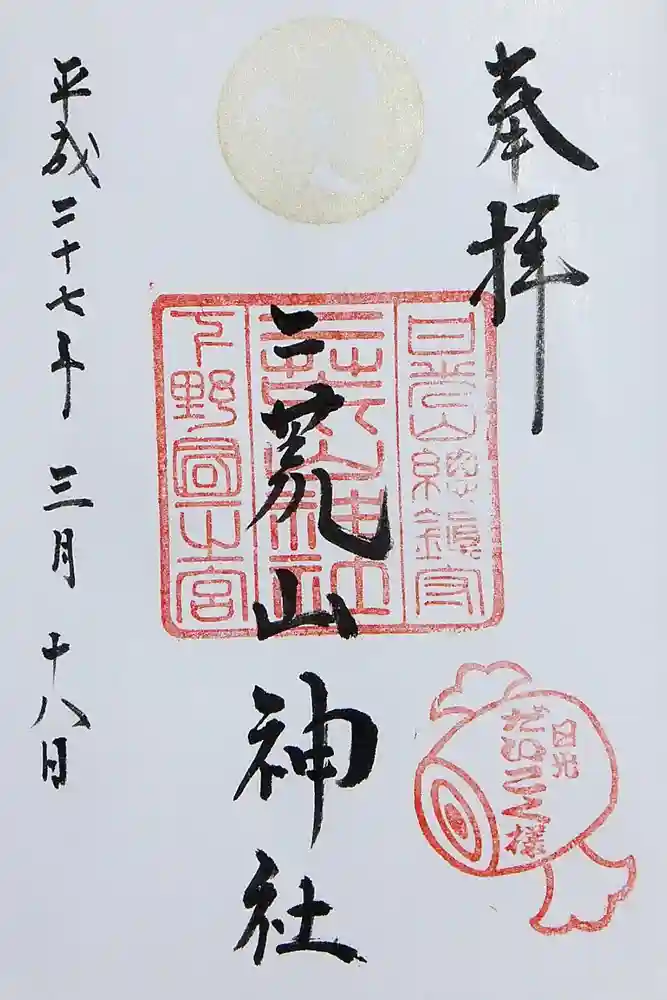 奉拝
日光山總鎮守
二荒山神社
下野國一之宮
二荒山神社
平成二十七年 三月 十八日
日光
だいこく様